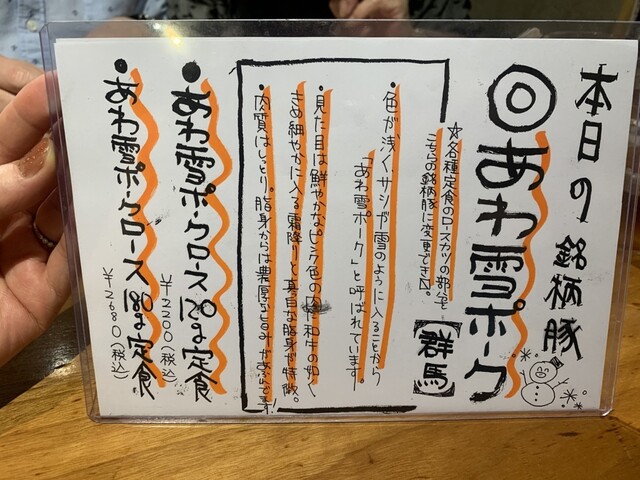 本日の銘柄豚
◎あわ雪ポーク
【群馬】
☆各種定食のロースカツの部位を
こちらの銘柄豚に変更でき〼。
・色が浅く、サシが雪のように入ることから
「あわ雪ポーク」と呼ばれています。
・見た目は鮮やかなピンク色の肉に和牛の如く
きめ細やかに入る霜降りと真白な脂身が特徴。
・肉質はしっとり。脂身からは濃厚な旨みがあふれます!
●あわ雪ポークロース120g定食
¥2200(税込)
●あわ雪ポークロース180g定食
¥2680(税込)